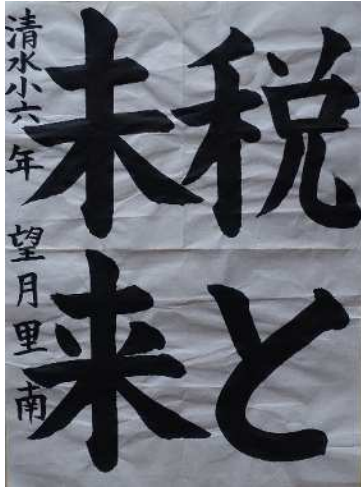 税と
未来
清水小六年 望月里南